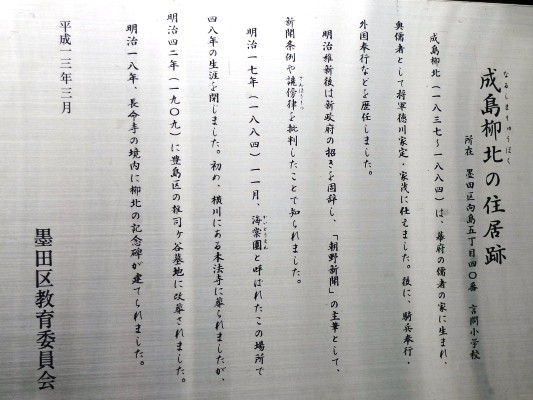 なるしまりゅうほく
成島柳北の住居跡
所在 墨田区向島五丁目四〇番 言問小学校
成島柳北（一八三七〜一八八四）は、幕府の儒者の家に生まれ、
奥儒者として将軍徳川家定・家茂に仕えました。後に、騎兵奉行・
外国奉行などを歴任しました。
明治維新後は新政府の招きを固辞し、「朝野新聞」の主筆として、
新聞条例や讒傍律を批判したことで知られました。
明治一七年（一八八四）一一月、海棠園と呼ばれたこの場所で
四八年の生涯を閉じました。初め、横川にある本法寺に葬られましたが、
明治四二年（一九〇九）に豊島区の雑司ヶ谷墓地に改葬されました。
明治一八年、長命寺の境内に柳北の記念碑が建てられました。
平成一三年三月
墨田区教育委員会